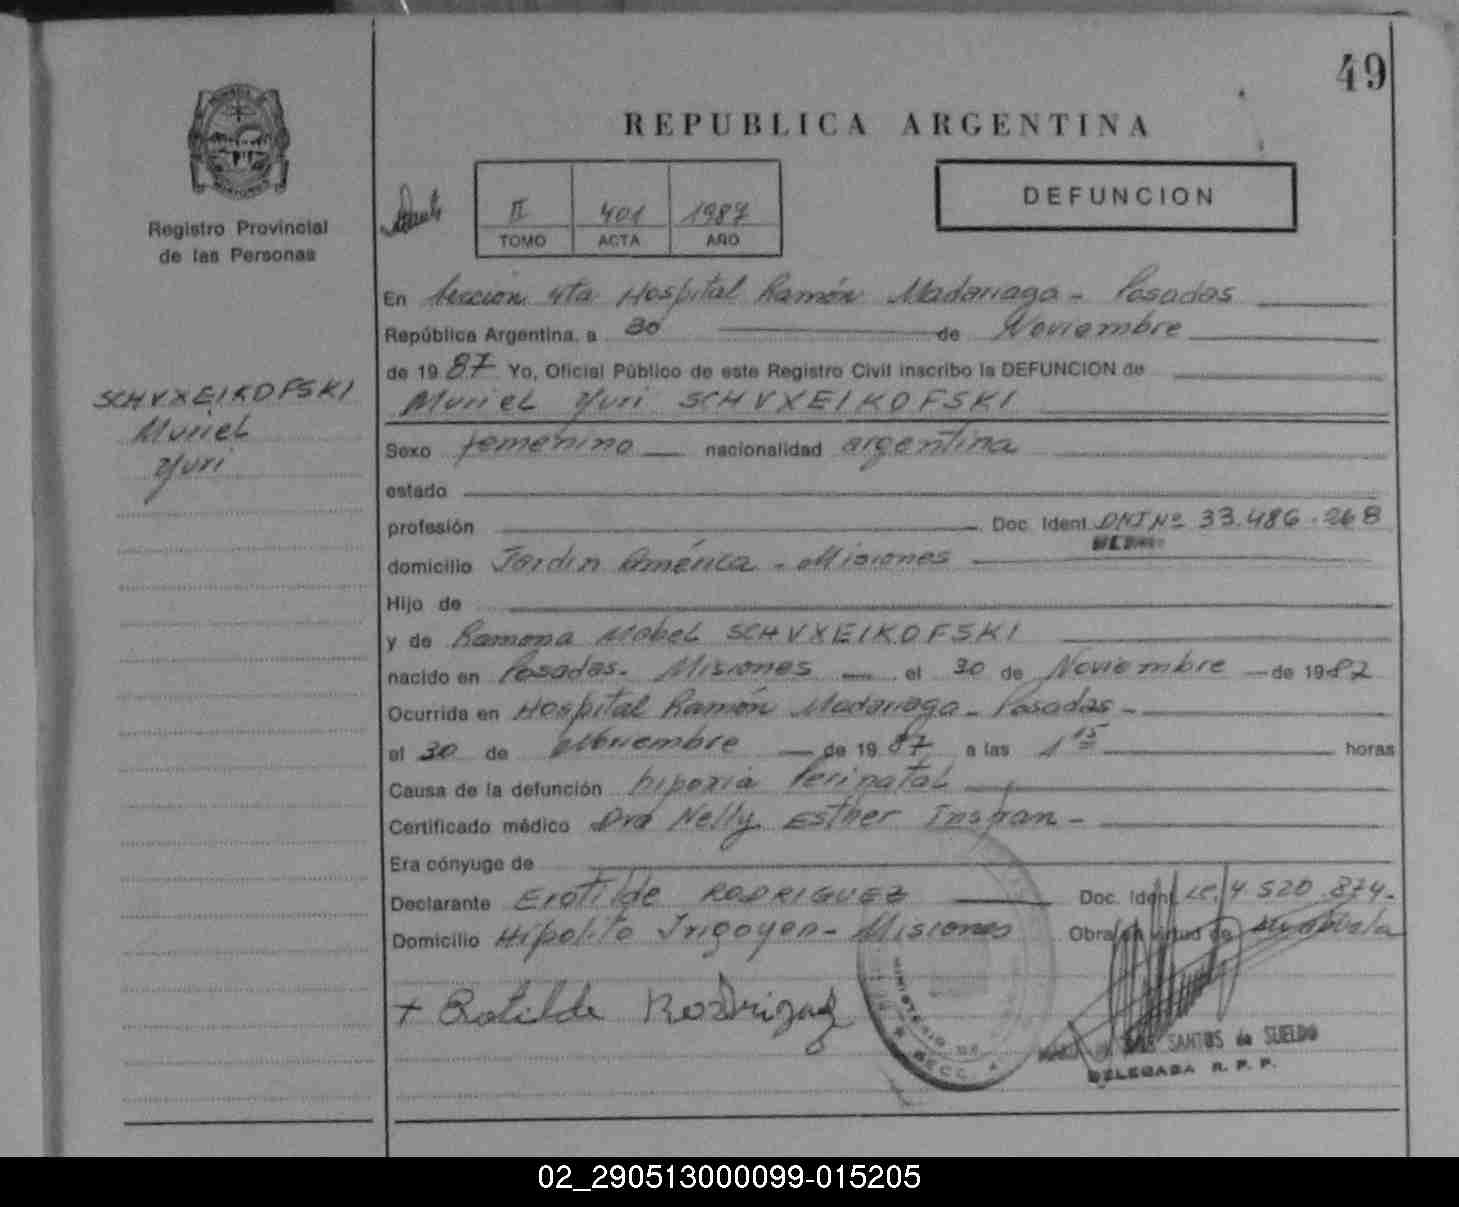 49
REPUBLICA ARGENTINA
Registro Provincial
de las Personas
II 401 1987
TOMO ACTA AÑO
DEFUNCION
SCHVXEIKOFSKI
Muriel
Yuri
En Sección 4ta Hospital Ramón Madariaga - Posadas
República Argentina, a 30 de Noviembre
de 1987 Yo, Oficial Público de este Registro Civil inscribo la DEFUNCION de
Muriel Yuri SCHVXEIKOFSKI
Sexo femenino nacionalidad argentina
estado
profesión Doc. Ident. DNI Nº 33.486.268
domicilio Jardín América - Misiones
Hijo de
y de Ramona Mabel SCHVXEIKOFSKI
nacido en Posadas - Misiones el 30 de Noviembre de 1987
Ocurrida en Hospital Ramón Madariaga - Posadas -
el 30 de Noviembre de 1987 a las 1 15 horas
Causa de la defunción hipoxia Perinatal
Certificado médico Dra Nelly Esther
Era cónyuge de
Declarante Erotilde RODRIGUEZ Doc. Ident. LC. 4.520.874-
Domicilio Hipólito Irigoyen - Misiones Obra en virtud de
+ Rotilde Rodriguez
MINISTERIO DE
SECC. 4
SANTOS de SUELDO
DELEGADA R. P. P.
02_290513000099-015205